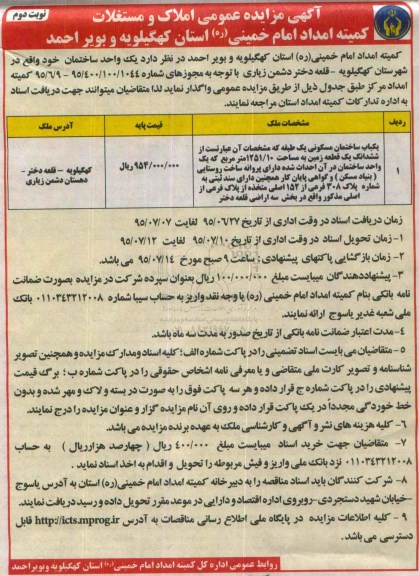 نوبت دوم
آگهی مزایده عمومی املاک و مستغلات
کمیته امداد امام خمینی(ره) استان کهگیلویه و بویر احمد
کمیته امداد امام خمینی(ره) استان کهگیلویه و بویر احمد در نظر دارد یک واحد ساختمان خود واقع در
شهرستان کهگیلویه - قلعه دختر دشمن زیاری با توجه به مجوزهای شماره ۹۵/۴۰۰/۱۰۰/۱۰۴۴ - ۹۵/۶/۹ کمیته
امداد مرکز طبق جدول ذیل از طریق مزایده عمومی واگذار نماید لذا متقاضیان میتوانند جهت دریافت اسناد
به اداره تدارکات کمیته امداد استان مراجعه نمایند.
ردیف مشخصات ملک قیمت پایه آدرس ملک
۱ یکباب ساختمان مسکونی یک طبقه که مشخصات آن عبارتست از ششدانگ یک قطعه زمین به مساحت ۱۲۵۱/۱۰ متر مربع که یک واحد ساختمان در آن احداث شده دارای پروانه ساخت روستایی ( بنیاد مسکن ) و گواهی پایان کار همچنین دارای سند ثبتی به شماره پلاک ۳۰۸ فرعی از ۱۵۲ اصلی متخذه از پلاک فرعی از اصلی مذکور واقع در بخش سه اراضی قلعه دختر ۹۵۴/۰۰۰/۰۰۰ ریال کهگیلویه - قلعه دختر - دهستان دشمن زیاری
زمان دریافت اسناد در وقت اداری از تاریخ ۹۵/۰۶/۲۷ لغایت ۹۵/۰۷/۰۷
۱- زمان تحویل اسناد در وقت اداری از تاریخ ۹۵/۰۷/۱۰ لغایت ۹۵/۰۷/۱۳
۲- زمان بازگشایی پاکتهای پیشنهادی: ساعت ۹ صبح مورخ ۹۵/۰۷/۱۴ می باشد.
۳- پیشنهاددهندگان میبایست مبلغ ۱۰۰/۰۰۰/۰۰۰ ریال بعنوان سپرده شرکت در مزایده بصورت ضمانت
نامه بانکی بنام کمیته امداد امام خمینی (ره) یا وجه نقد واریز به حساب سیبا شماره ۰۱۱۰۳۴۳۲۱۲۰۰۸ بانک
ملی شعبه غدیر یاسوج ارائه نمایند.
۴- مدت اعتبار ضمانت نامه بانکی از تاریخ صدور به مدت سه ماه باشد.
۵- متقاضیان می بایست اسناد تضمینی را در پاکت شماره الف؛ کلیه اسناد ومدارک مزایده و همچنین تصویر
شناسنامه و تصویر کارت ملی متقاضی و یا معرفی نامه اشخاص حقوقی را در پاکت شماره ب؛ برگ قیمت
پیشنهادی را در پاکت شماره ج قرار داده و هر سه پاکت فوق را به صورت در بسته و لاک و مهر شده و بدون
خط خوردگی مجدداً در یک پاکت قرار داده و روی آن نام مزایده گزار و عنوان مزایده را درج نمایند.
۶- کلیه هزینه های نشر و آگهی و کارشناسی ملک به عهده برنده مزایده می باشد.
۷- متقاضیان جهت خرید اسناد میبایست مبلغ ۴۰۰/۰۰۰ ریال ( چهارصد هزارریال ) به حساب
۰۱۱۰۳۴۳۲۱۲۰۰۸ نزد بانک ملی واریز و فیش مربوطه را تحویل و اقدام به اخذ اسناد نماید.
۸- شرکت کنندگان باید اسناد مناقصه را به دبیرخانه کمیته امداد امام خمینی(ره) استان به آدرس یاسوج
-خیابان شهید دستجردی-روبروی اداره اقتصاد و دارایی در موعد مقرر تحویل داده و رسید دریافت نمایند.
۹- کلیه اطلاعات مزایده در پایگاه ملی اطلاع رسانی مناقصات به آدرس http://icts.mprog.ir قابل
دسترسی می باشد.
روابط عمومی اداره کل کمیته امداد امام خمینی(ره) استان کهگیلویه وبویراحمد